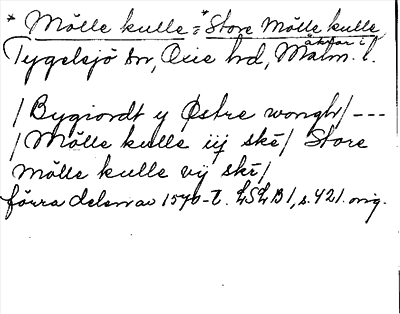 * Mölle kulle = * Store Mölle kulle
åkrar i
Tygelsjö sn, Oxie hd, Malm. l.
/ Bygiordt y Østre wongh / ---
/ Mölle kulle iij skē / Store
Mölle kulle vij skē /
förra delen av 1570-t. LSLB 1, s. 421. orig.